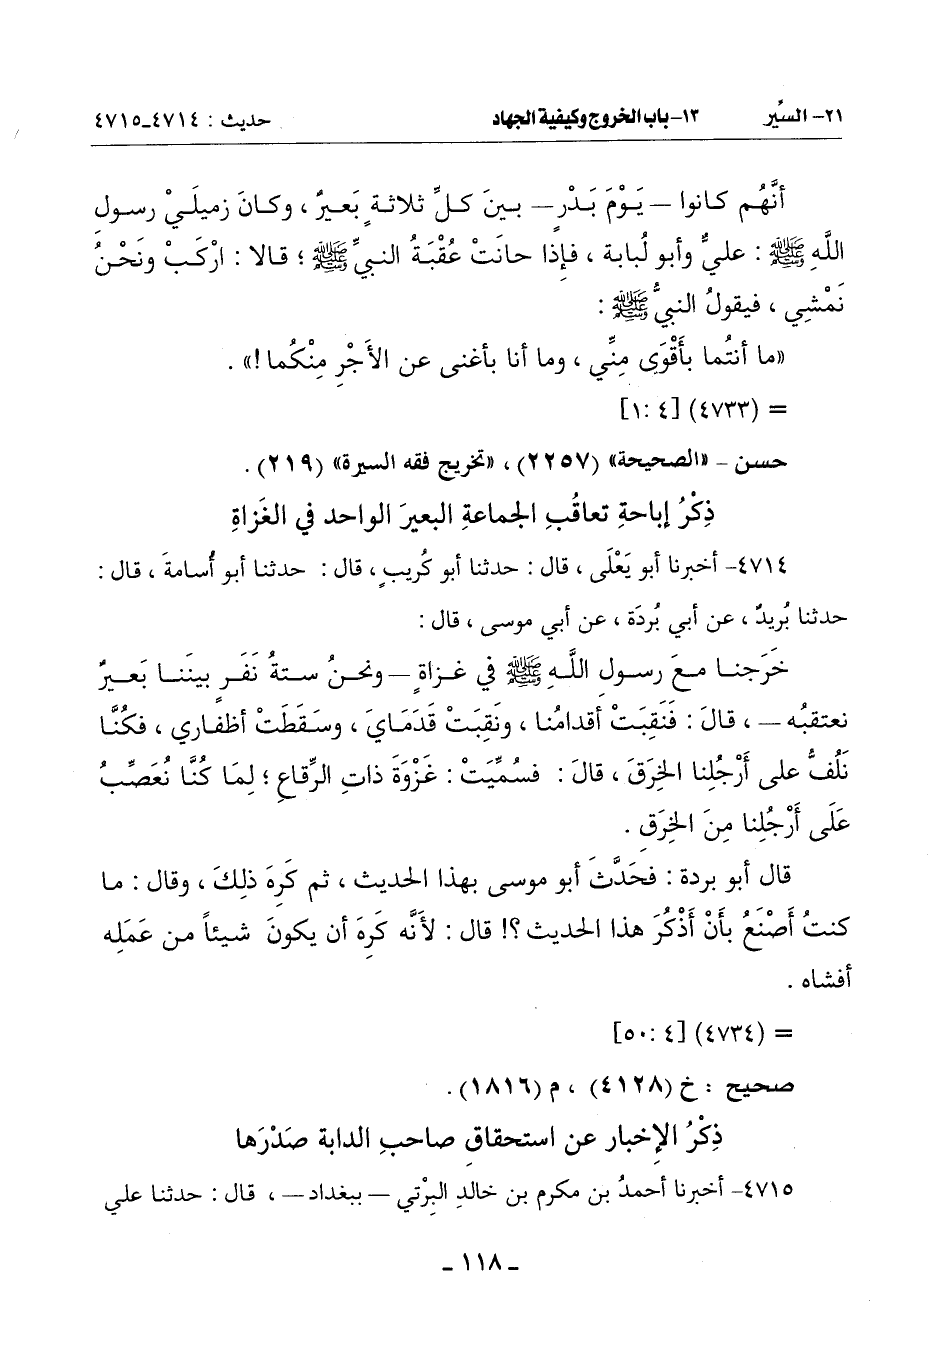 ٢١- السِّير ١٣- باب الخروج وكيفية الجهاد حديث : ٤٧١٤-٤٧١٥
أنَّهُم كانوا — يَوْمَ بَدْرٍ — بينَ كلِّ ثلاثةٍ بَعيرٌ ، وكانَ زميلَيْ رسولِ
اللَّهِ ﷺ : عليٌّ وأبو لُبابة ، فإذا حانَتْ عُقْبَةُ النبيِّ ﷺ ؛ قالا : ارْكَبْ ونَحْنُ
نَمْشِي ، فيقولُ النبيُّ ﷺ :
«ما أنتُما بأَقْوَى مِنِّي ، وما أنا بأغنى عن الأَجْرِ مِنْكُما !» .
= (٤٧٣٣) [٤ :١]
حسن – «الصحيحة» (٢٢٥٧) ، «تخريج فقه السيرة» (٢١٩) .
ذِكْرُ إباحةِ تعاقُبِ الجماعةِ البعيرَ الواحد في الغَزاةِ
٤٧١٤- أخبرنا أبو يَعْلَى ، قال : حدثنا أبو كُريبٍ ، قال : حدثنا أبو أُسامةَ ، قال :
حدثنا بُريدٌ ، عن أبي بُردَة ، عن أبي موسى ، قال :
خَرَجنا معَ رسولِ اللَّهِ ﷺ في غزاةٍ — ونحنُ ستةُ نَفَرٍ بينَنا بَعيرٌ
نعتقبُه — ، قالَ : فَنَقِبَتْ أقدامُنا ، ونَقِبَتْ قَدَمَايَ ، وسَقَطَتْ أظفاري ، فكُنَّا
نَلُفُّ على أَرْجُلِنا الخِرَقَ ، قالَ : فسُمِّيَتْ : غَزْوَةَ ذاتِ الرِّقاعِ ؛ لِمَا كُنَّا نُعَصِّبُ
عَلَى أَرْجُلِنا مِنَ الخِرَقِ .
قال أبو بردة : فحَدَّثَ أبو موسى بهذا الحديث ، ثم كَرِهَ ذلِكَ ، وقال : ما
كنتُ أَصْنَعُ بأَنْ أَذْكُرَ هذا الحديث ؟! قال : لأَنَّه كَرِهَ أن يكونَ شيئاً من عَمَلِه
أفشاه .
= (٤٧٣٤) [٤ :٥٠]
صحيح : خ (٤١٢٨) ، م (١٨١٦) .
ذِكْرُ الإخبارِ عن استحقاقِ صاحبِ الدابة صَدْرَها
٤٧١٥- أخبرنا أحمدُ بن مكرم بن خالدٍ البِرْتي — ببغداد — ، قال : حدثنا علي
– ١١٨ –